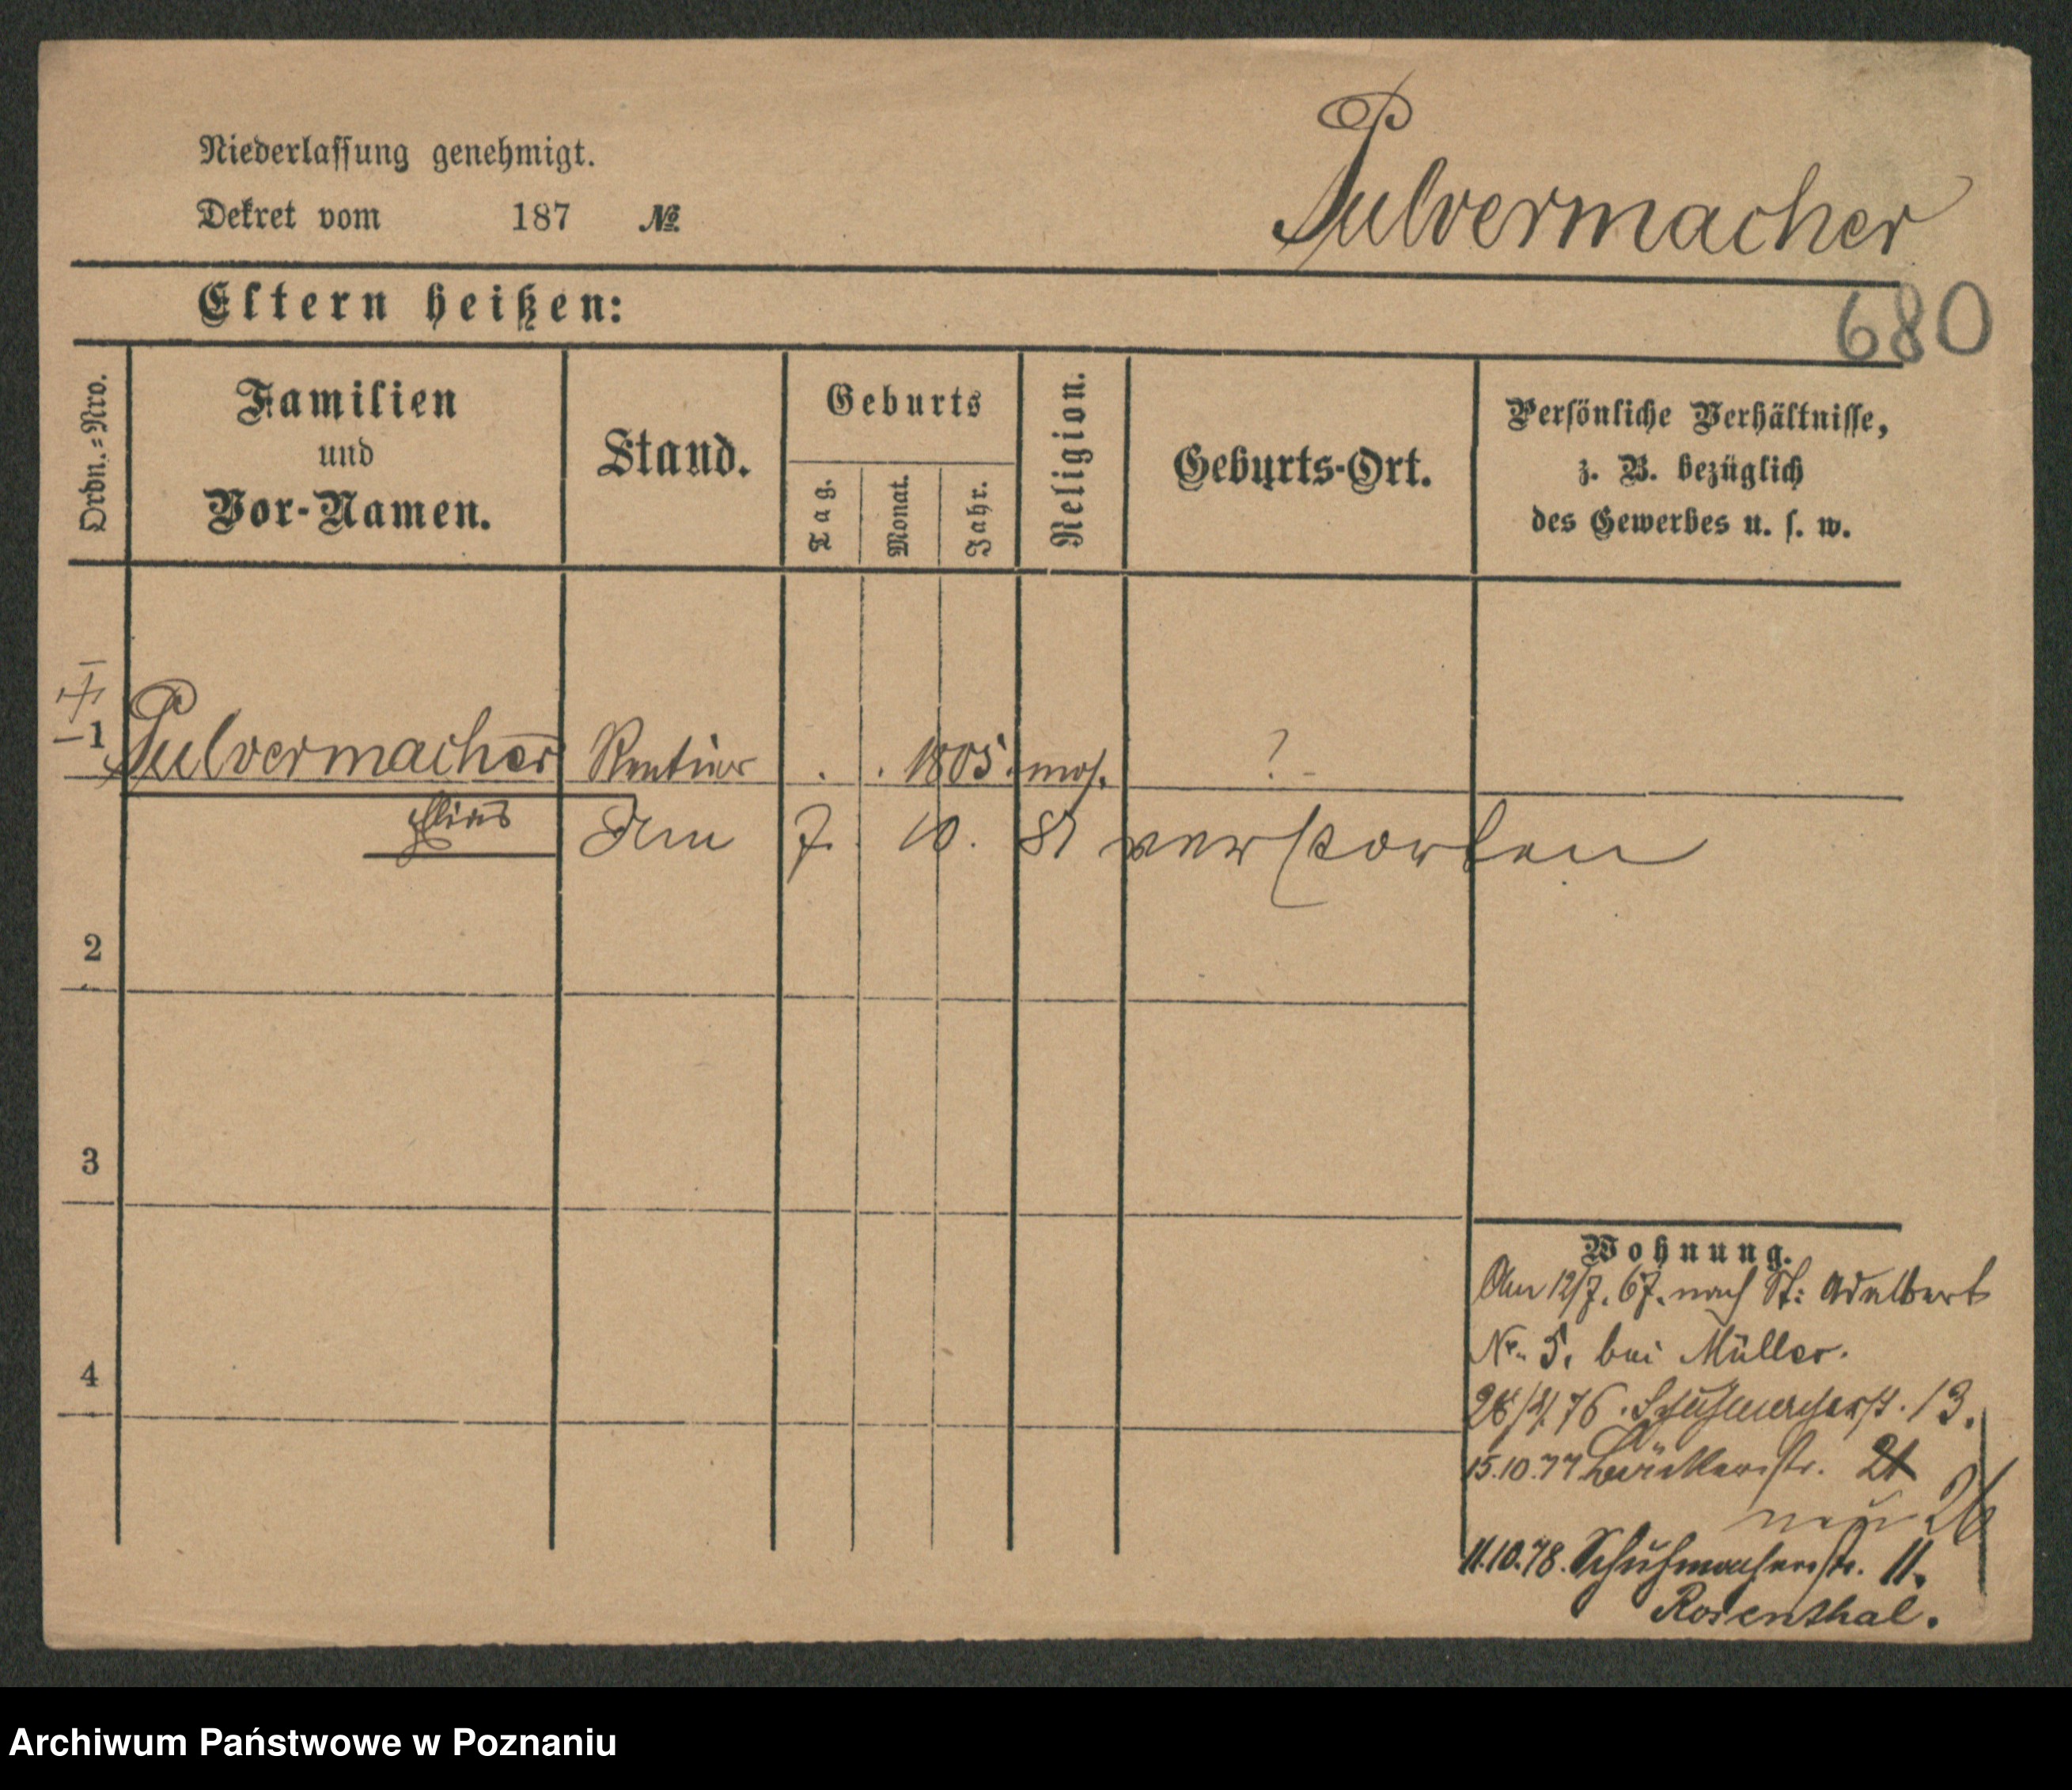 Niederlassung genehmigt.
Dekret vom 187 №
Pulvermacher
680
Eltern heißen:
Ordn.=Nro.
Familien
und
Vor-Namen.
Stand.
Geburts
Tag.
Monat.
Jahr.
Religion.
Geburts-Ort.
Persönliche Verhältnisse,
z. B. bezüglich
des Gewerbes u. s. w.
1 Pulvermacher Rentier . . 1805. mos. ?
Elias Am 7. 10. 81 verstorben
2
3
4
Wohnung.
Am 12/7. 67. nach St: Adalbert
Nr. 5. bei Müller.
76. Schuhmacherst. 13.
15.10.77 Bäckerstr. 21
neu 26
11.10.78. Schuhmacherstr. 11.
Rosenthal.
Archiwum Państwowe w Poznaniu